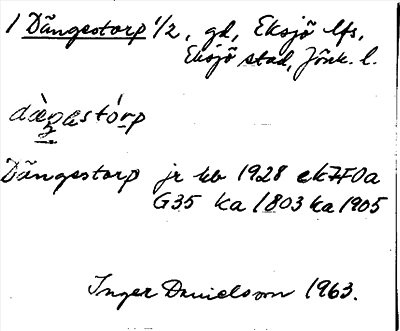 1 Dängestorp 1/2, gd, Eksjö lfs,
Eksjö stad, Jönk. l.
dàŋɑstórp
Dängestorp jr kb 1928 ek 7F0a
G35 ka 1803 ka 1905
Inger Danielsson 1963.